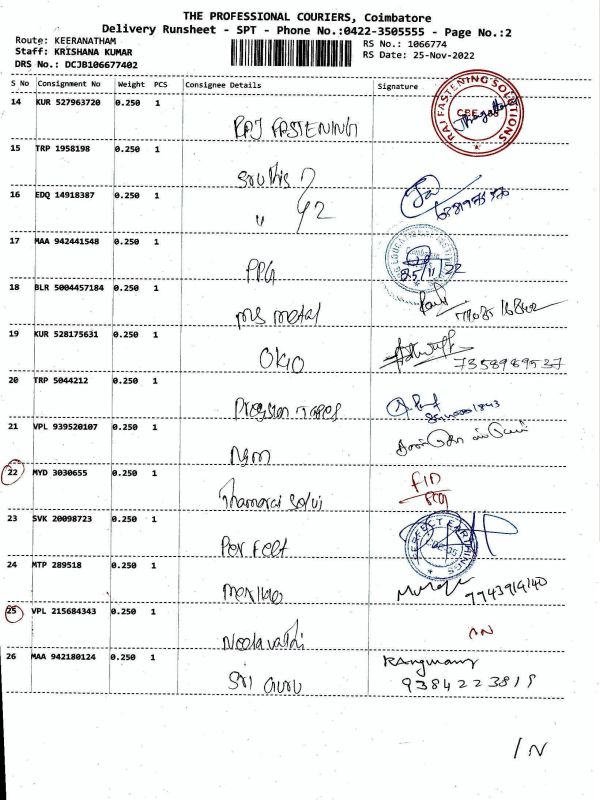 THE PROFESSIONAL COURIERS, Coimbatore
Delivery Runsheet - SPT - Phone No.:0422-3505555 - Page No.:2
Route: KEERANATHAM
Staff: KRISHANA KUMAR
DRS No.: DCJB106677402
RS No.: 1066774
RS Date: 25-Nov-2022
S No Consignment No Weight PCS Consignee Details Signature
14 KUR 527963720 0.250 1
RAJ FASTENING
RAJ FASTENING SOLUTIONS
CBE
15 TRP 1958198 0.250 1
16 EDQ 14918387 0.250 1
17 MAA 942441548 0.250 1
PPG
25/11/22
18 BLR 5004457184 0.250 1
ms metal
19 KUR 528175631 0.250 1
OKIO
7358989537
20 TRP 5044212 0.250 1
21 VPL 939520107 0.250 1
22 MYD 3030655 0.250 1
Thamarai Selvi
23 SVK 20098723 0.250 1
Perfect
PERFECT EARTHINGS
24 MTP 289518 0.250 1
25 VPL 215684343 0.250 1
Neelavathi
26 MAA 942180124 0.250 1
Sri Guru
9384223819
/ N